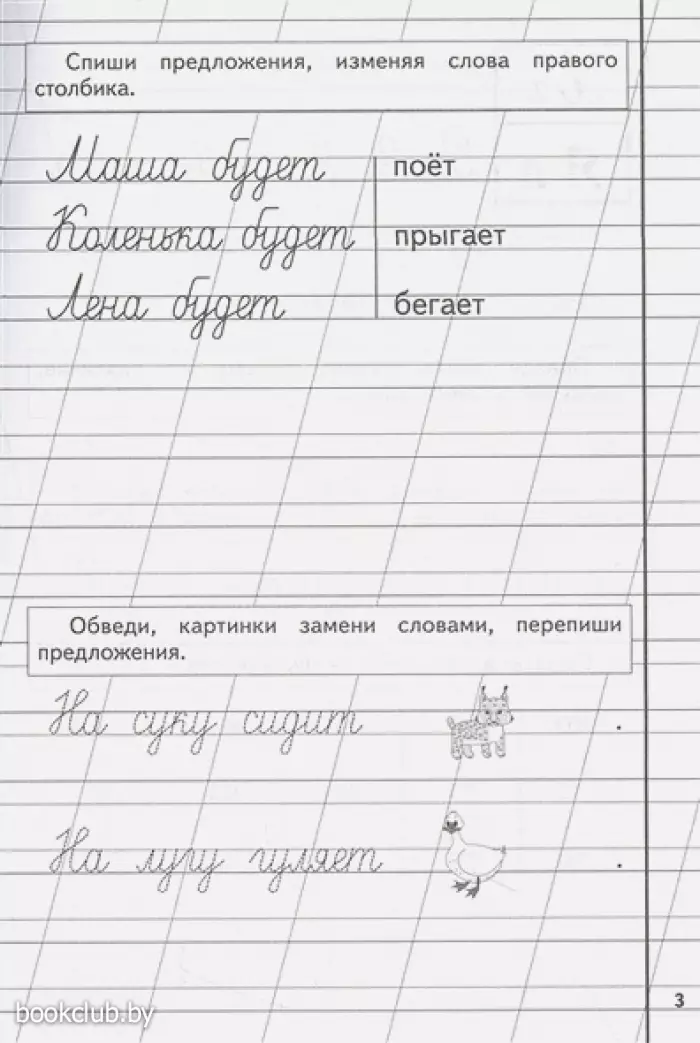 Спиши предложения, изменяя слова правого
столбика.
Маша будет поёт
Коленька будет прыгает
Лена будет бегает
Обведи, картинки замени словами, перепиши
предложения.
На суку сидит .
На лугу гуляет .
3
bookclub.by